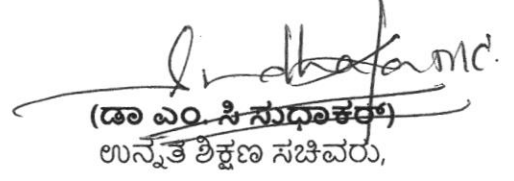 (ಡಾ ಎಂ. ಸಿ ಸುಧಾಕರ್)
ಉನ್ನತ ಶಿಕ್ಷಣ ಸಚಿವರು,